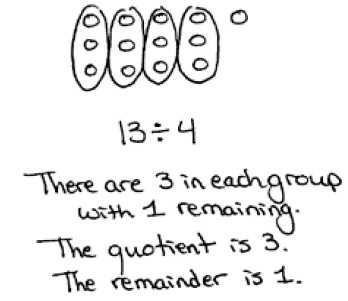 13÷4
There are 3 in each group
with 1 remaining.
The quotient is 3.
The remainder is 1.